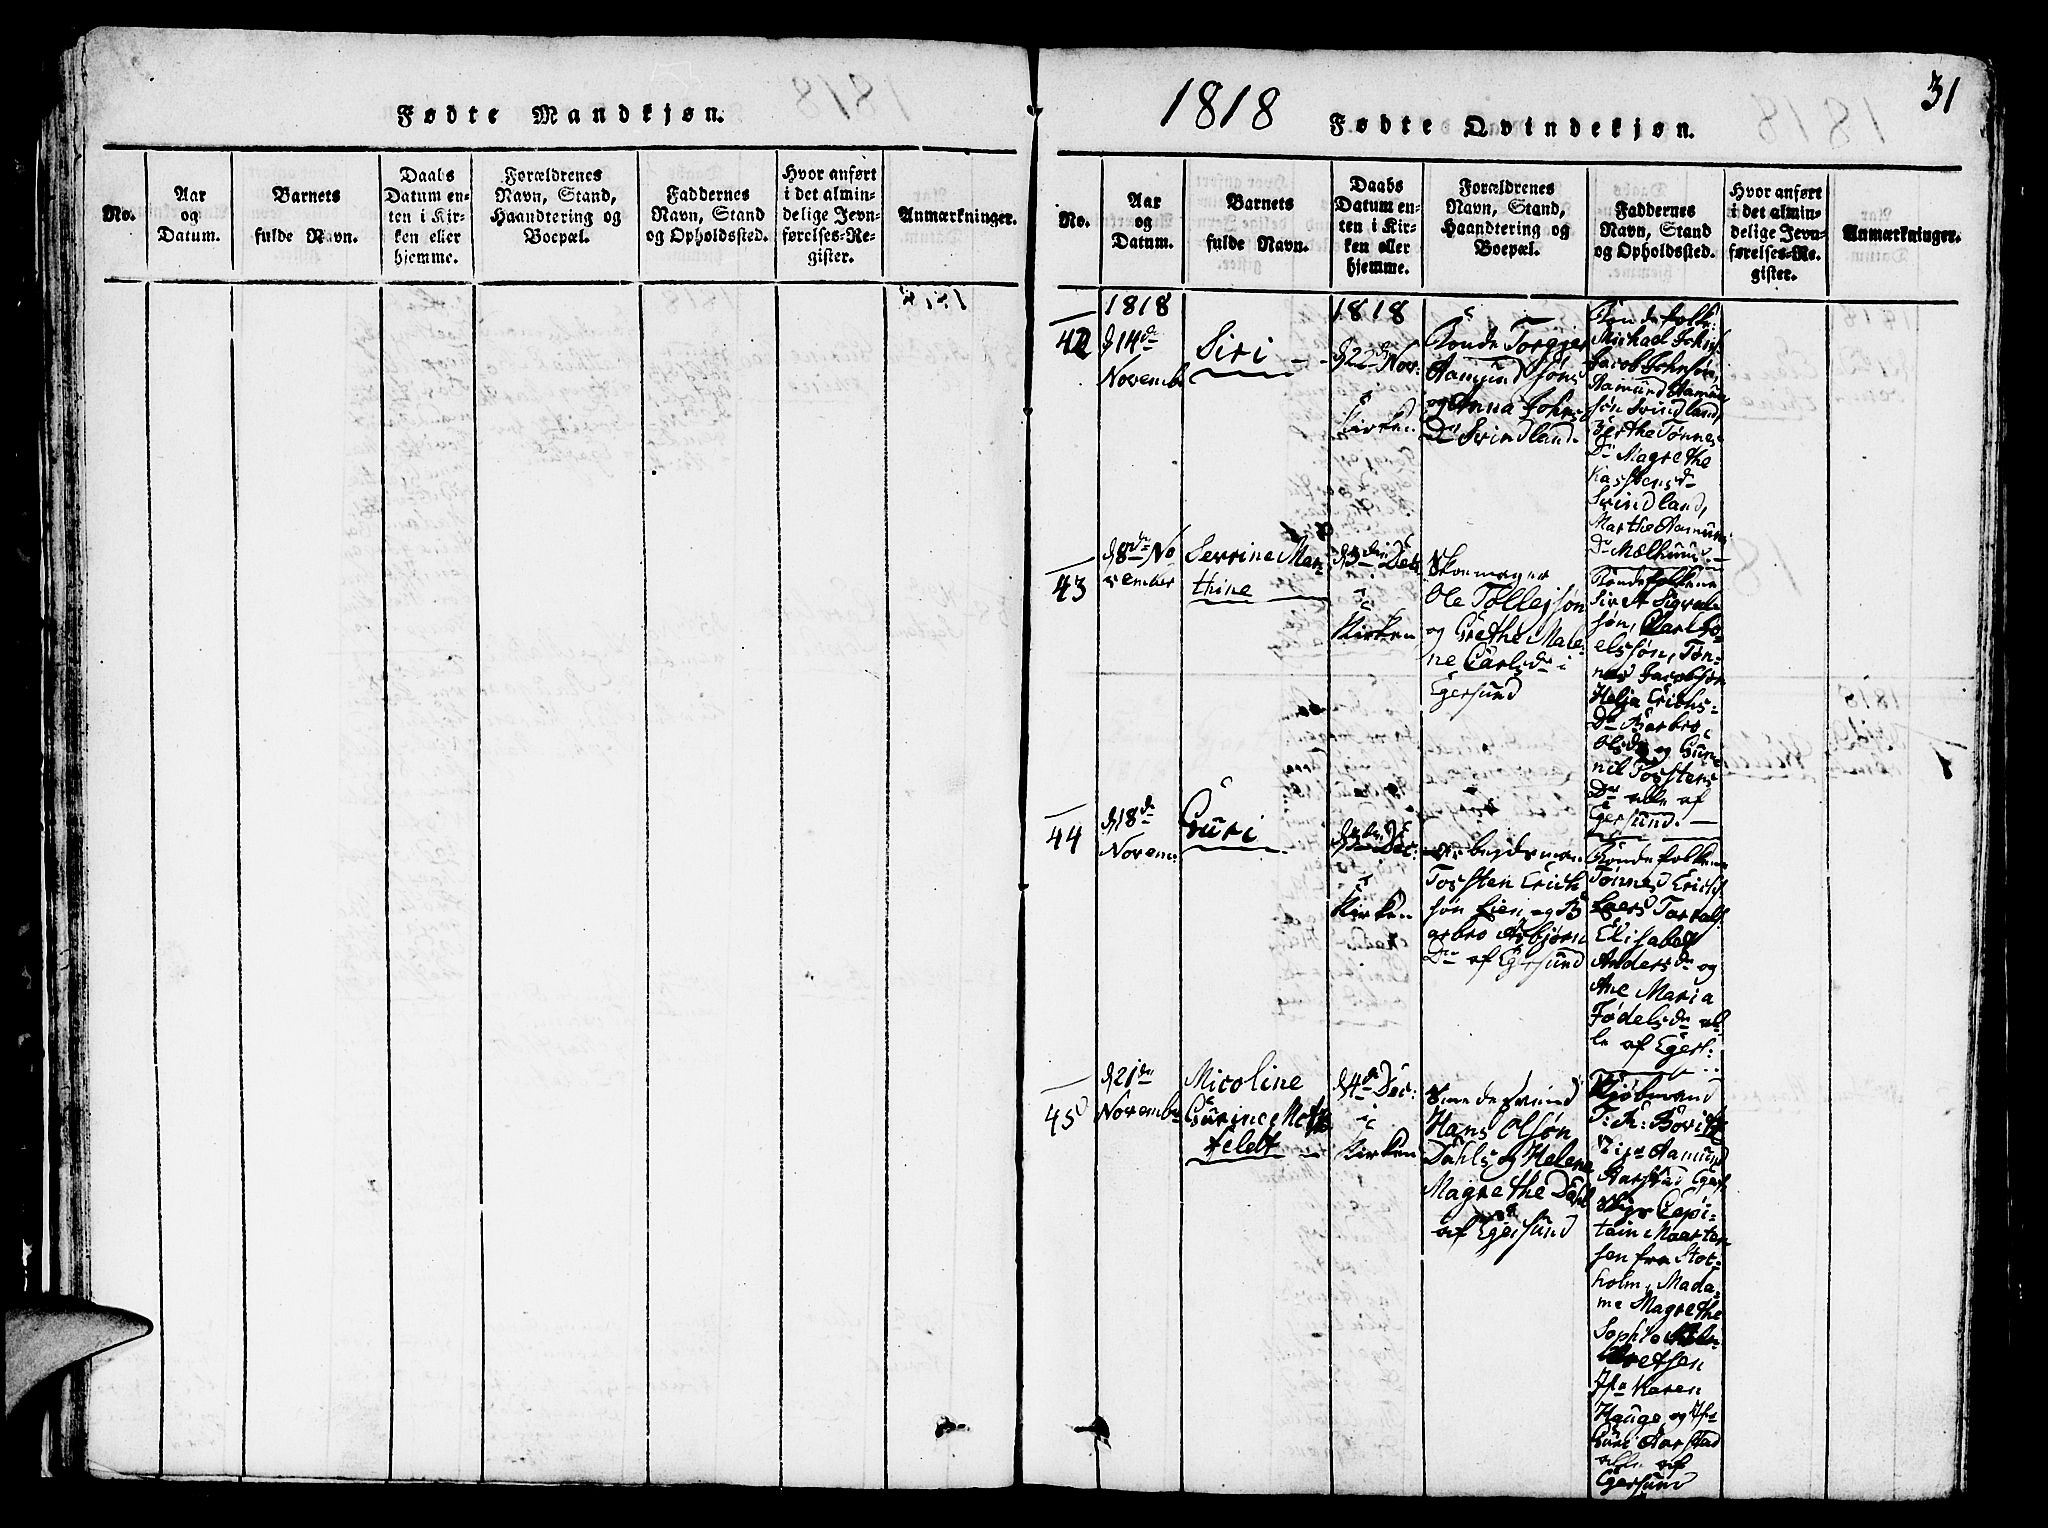 Fødte Mandkjøn.
No.
Aar
og
Datum.
Barnets
fulde Navn.
Daabs
Datum en-
ten i Kir-
ken eller
hjemme.
Forældrenes
Navn, Stand,
Haandtering og
Boepæl.
Faddernes
Navn, Stand
og Opholdssted.
Hvor anført
i det almin-
delige Jevn-
førelses-Re-
gister.
Anmærkninger.
1818
Fødte Qvindekjøn.
31
No.
Aar
og
Datum.
Barnets
fulde Navn.
Daabs
Datum en-
ten i Kir-
ken eller
hjemme.
Forældrenes
Navn, Stand,
Haandtering og
Boepæl.
Faddernes
Navn, Stand
og Opholdssted.
Hvor anført
i det almin-
delige Jevn-
førelses-Re-
gister.
Anmærkninger.
42
1818
d 14de
Novemb
Siri
1818
d 22de Nov:
i
Kirken
Bonde Torgjer
Aamund Søns
og Anna Johns
Dr Svindland
Bondefolk:
Michael Johns
Jacob Johnsøn,
Aamund Aamun
søn Svindland,
Berthe Tønnes
Dr Magrethe
Karstensdr
Svindland,
Marthe Aamunds
Dr Mælhuus
43
d 8de No
vember
Serine Mar
thine
d 3die Dec
i
Kirken
Skoemager
Ole Tollefsøn
og Grethe Male-
ne Carlsdr i
Egersund
Bondefolkene
Sivert Sigval
søn, Carl Jo-
elssøn, Tøn-
nes Jacobsøn
Helja Erichs-
Dr Barbro
Olsdr og Gun-
nil Torstens
Dr alle af
Egersund.
44
d 18de
Novem:
Guri
d 3die Dec:
i
Kirken
Arbeydsman
Torsten Erich
søn Eien og B
arbro Asbjørn
Dr af Egersund
Bondefolkene
Tønnes Erichs
Laers Torvals
Elisabet
Andersdr og
Ane Maria
Fødelsdr al-
le af Egers:
45
d 21de
Novemb
Nicoline
Gurine Motz
feldt
d 4de Dec:
i
Kirken
Smedesvend
Hans Olsøn
Dahls og Helene
Magrethe Dahl
af Egersund
Kjøbmand
Aamund
Aarstad Egers
Capi-
tain Maarten
sen fra Stok-
holm, Mada-
me Magrethe
Sophie
Jfr Karen
Hauge, og Jfr
Guri Aarstad
alle af
Egersund